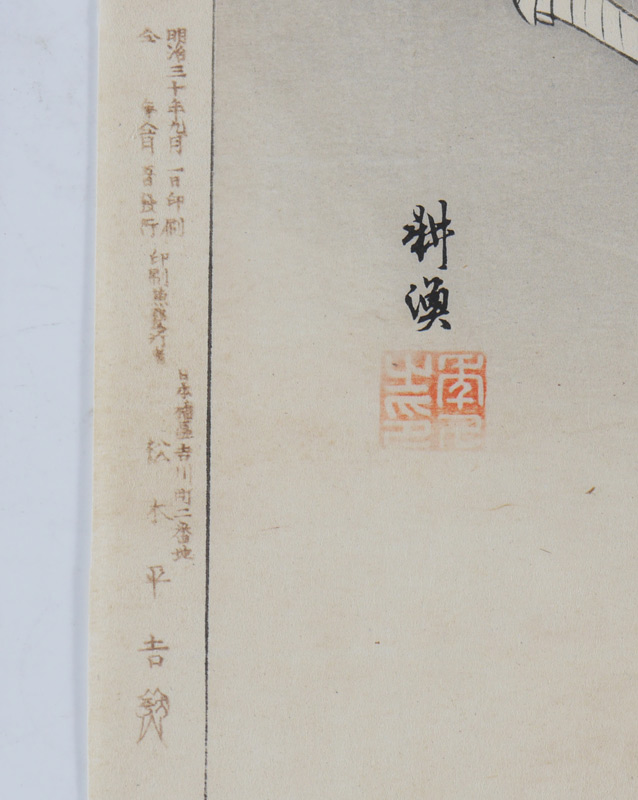 耕漁
明治三十年九月一日印刷
仝 年仝月 日發行
印刷兼發行者
日本橋區吉川町二番地
松木平吉